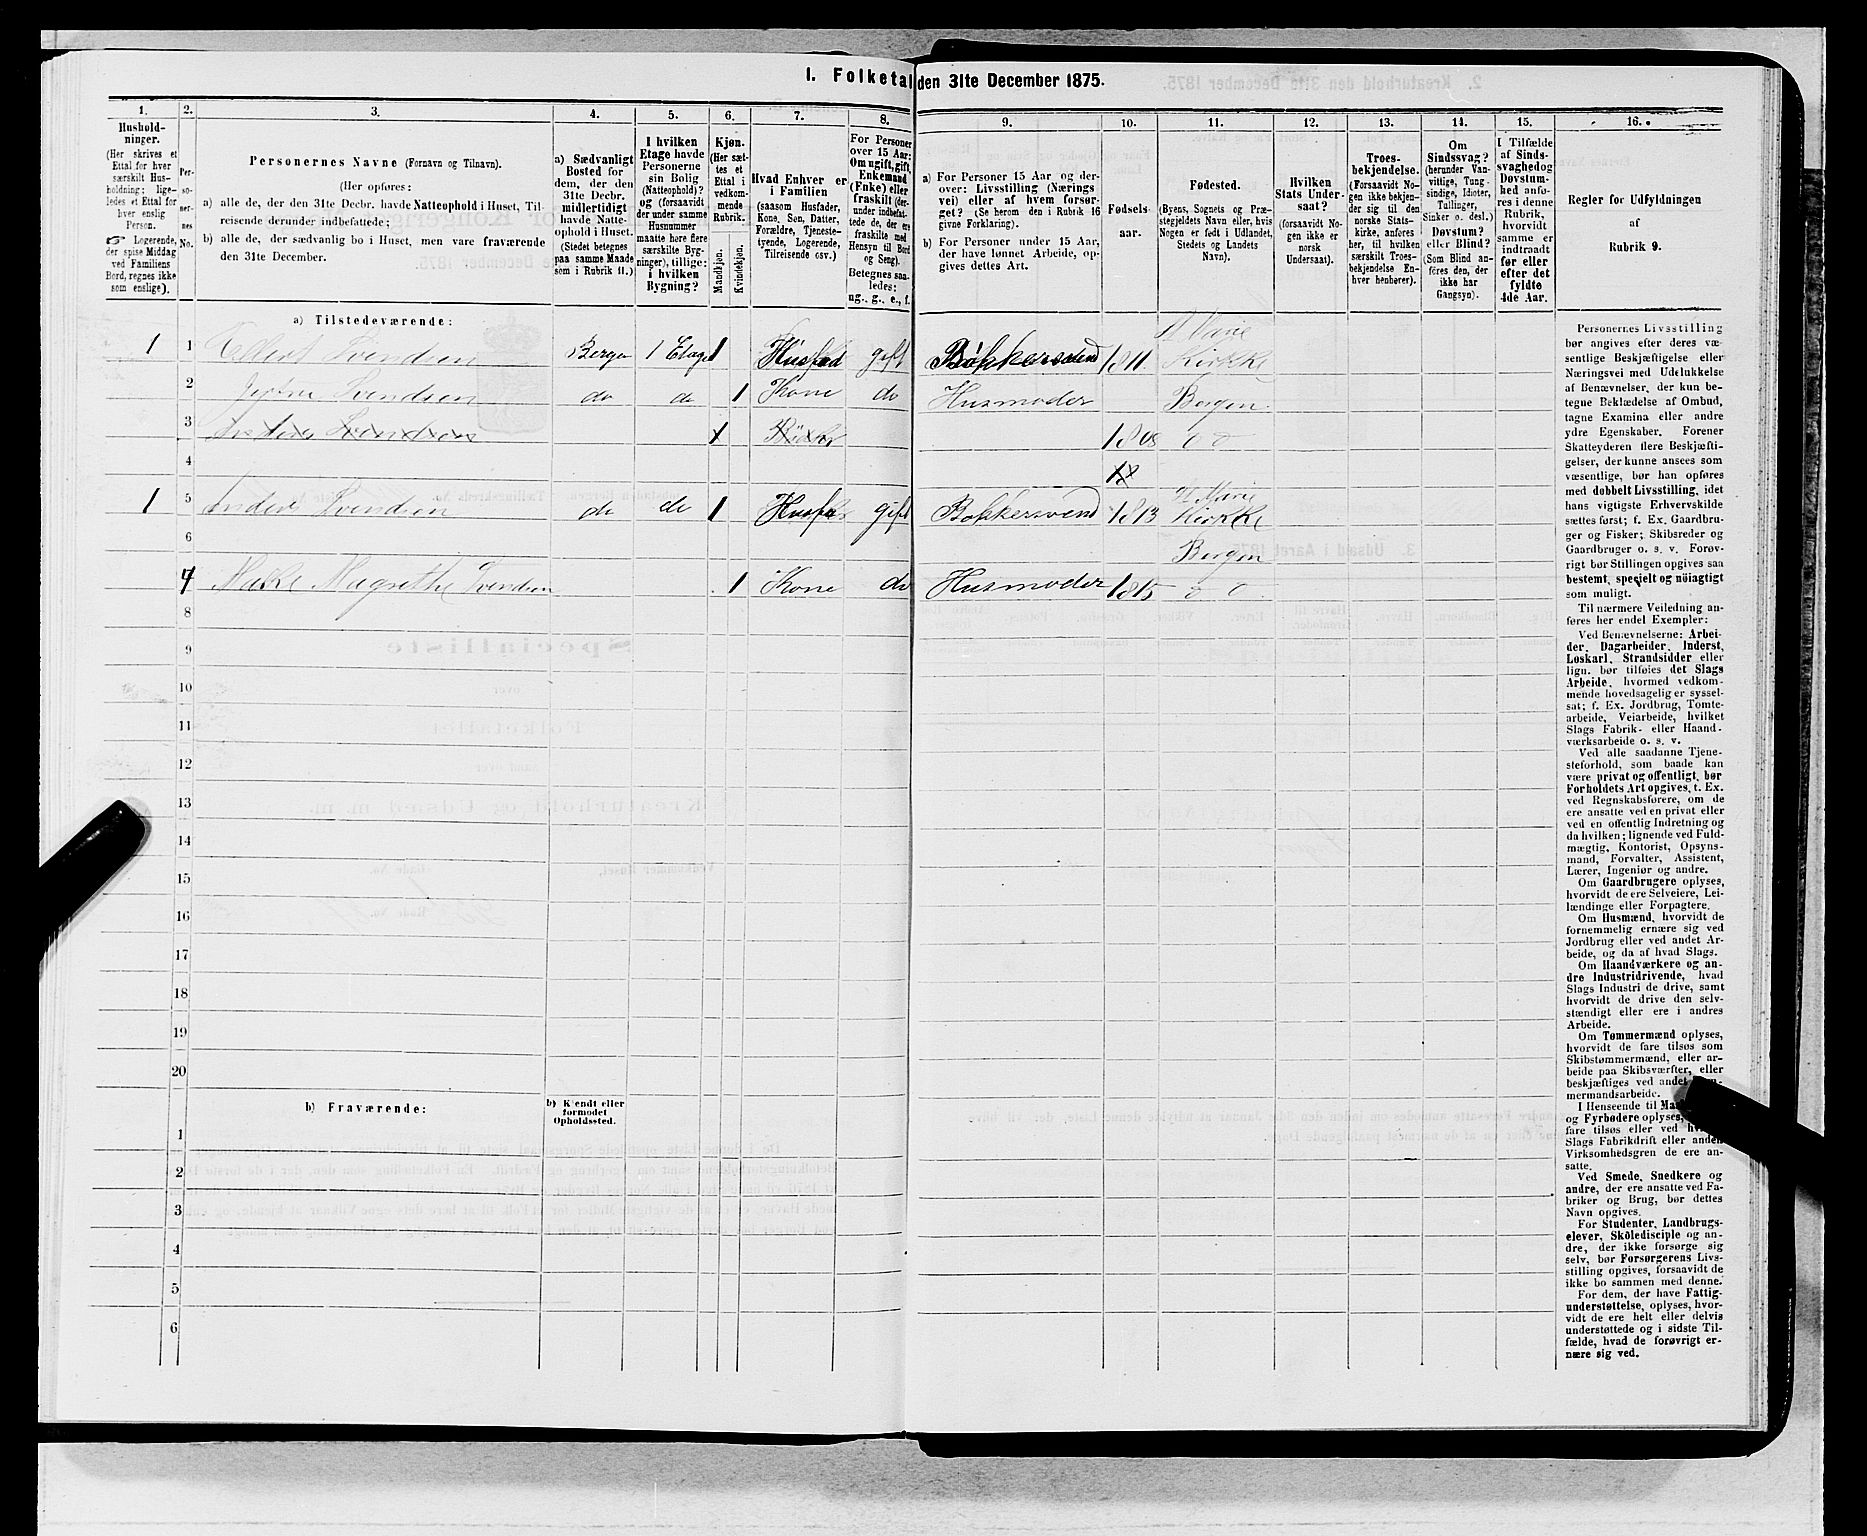 I. Folketal den 31te December 1875.
1.
Hushold-
ninger.
(Her skrives et
Ettal for hver
særskilt Hus-
holdning; lige-
ledes et Ettal for
hver enslig
Person.
☞ Logerende,
der spise Middag
ved Familiens
Bord, regnes ikke
som enslige).
2.
Per-
so-
ner-
nes
No.
3.
Personernes Navne (Fornavn og Tilnavn).
(Her opføres:
a) alle de, der den 31te Decbr. havde Natteophold i Huset, Til-
reisende derunder indbefattede;
b) alle de, der sædvanlig bo i Huset, men vare fraværende
den 31te December.
4.
a) Sædvanligt
Bosted for
dem, der den
31te Decbr.
midlertidigt
havde Natte-
ophold i Huset.
(Stedet betegnes
paa samme Maade
som i Rubrik 11.)
5.
I hvilken
Etage havde
Personerne
sin Bolig
(Natteophold)?
og (forsaavidt
der under samme
Husnummer
maatte høre flere
særskilte Byg-
ninger), tillige:
i hvilken
Bygning?
6.
Kjøn.
(Her sæt-
tes et
Ettal i
vedkom-
mende
Rubrik.
Mandkjøn.
Kvindekjøn.
7.
Hvad Enhver er
i Familien
(saasom Husfader,
Kone, Søn, Datter,
Forældre, Tjeneste-
tyende, Logerende,
Tilreisende osv.)
8.
For Personer
over 15 Aar:
Om ugift, gift,
Enkemand
(Enke) eller
fraskilt (der-
under indbefat-
tede de, der ere
fraskilte med
Hensyn til Bord
og Seng).
Betegnes saa-
ledes:
ug., g., e., f.
9.
a) For Personer 15 Aar og der-
over: Livsstilling (Nærings
vei) eller af hvem forsør-
get? (Se herom den i Rubrik 16
givne Forklaring).
b) For Personer under 15 Aar,
der have lønnet Arbeide, op-
gives dettes Art.
10.
Fødsels-
aar.
11.
Fødested.
(Byens, Sognets og Præ-
stegjeldets Navn eller, hvis
Nogen er født i Udlandet,
Stedets og Landets
Navn).
12.
Hvilken
Stats Under-
saat?
(forsaavidt No-
gen ikke er
norsk
Undersaat).
13.
Troes-
bekjendelse.
(Forsaavidt No-
gen ikke bekjen-
der sig til den
norske Stats-
kirke, anføres
her, til hvilken
særskilt Troes-
bekjendelse En-
hver henhører).
14.
Om
Sindssvag?
(herunder Van-
vittige, Tung-
sindige, Idioter,
Tullinger,
Sinker o. desl.)
Døvstum?
eller Blind?
(Som Blind an-
føres den, der
ikke har
Gangsyn).
15.
I Tilfælde
af Sinds-
svaghedog
Døvstum-
hed anfø-
res i denne
Rubrik,
hvorvidt
samme er
indtraadt
før eller
efter det
fyldte
4de Aar.
16.
Regler for Udfyldningen
af
Rubrik 9.
a) Tilstedeværende:
1 1 Ellert Svendsen Bergen 1 Etage 1 Husfad gift Bøkkersvend 1811 St Marie Kirkke
2 Svendsen do do 1 Kone do Husmoder Bergen
3 Svendsen 1808
4
1 5 Anders Svendsen do do 1 Husfar gift Bøkkersvend 1813 St Marie Kirkke
6 Bergen
7 Magrethe Svendsen 1 Kone do Husmoder 1815
8
9
10
11
12
13
14
15
16
17
18
19
20
b) Fraværende:
b) Kjendt eller
formodet
Opholdssted.
1
2
3
4
5
6
Personernes Livsstilling
bør angives efter deres væ-
sentlige Beskjæftigelse eller
Næringsvei med Udelukkelse
af Benævnelser, der kun be-
tegne Beklædelse af Ombud,
tagne Examina eller andre
ydre Egenskaber. Forener
Skatteyderen flere Beskjæfti-
gelser, der kunne ansees som
væsentlige, bør han opføres
med dobbelt Livsstilling, idet
hans vigtigste Erhvervskilde
sættes først; f. Ex. Gaardbru-
ger og Fisker; Skibsreder og
Gaardbruger o. s. v. Forøv-
rigt bør Stillingen opgives saa
bestemt, specielt og nöiagtigt
som muligt.
Til nærmere Veiledning an-
føres her endel Exempler:
Ved Benævnelserne: Arbei-
der, Dagarbeider, Inderst,
Løskarl, Strandsidder eller
lign. bør tilføies det Slags
Arbeide, hvormed vedkom-
mende hovedsagelig er syssel-
sat; f. Ex. Jordbrug, Tomte-
arbeide, Veiarbeide, hvilket
Slags Fabrik- eller Haand-
værksarbeide o. s. v.
Ved alle saadanne Tjene-
steforhold, som baade kan
være privat og offentligt, bør
Forholdets Art opgives, t. Ex.
ved Regnskabsførere, om de
ere ansatte ved en privat eller
ved en offentlig Indretning og
da hvilken; lignende ved Fuld-
mægtig, Kontorist, Opsyns-
mand, Forvalter, Assistent,
Lærer, Ingeniør og andre.
Om Gaardbrugere oplyses,
hvorvidt de ere Selveiere, Lei-
lændinge eller Forpagtere.
Om Husmænd, hvorvidt de
fornemmelig ernære sig ved
Jordbrug eller ved andet Ar-
beide, og da af hvad Slags.
Om Haandværkere og an-
dre Industridrivende, hvad
Slags Industri de drive, samt
hvorvidt de drive den selv-
stændigt eller ere i andres
Arbeide.
Om Tømmermænd oplyses,
hvorvidt de fare tilsøs som
Skibstømmermænd, eller ar-
beide paa Skibsværfter, eller
beskjæftiges ved andet
mermandsarbeide.
I Henseende til
og Fyrbødere oplyses,
fare tilsøs eller ved
Slags Fabrikdrift eller anden
Virksomhedsgren de ere an-
satte.
Ved Smede, Snedkere og
andre, der ere ansatte ved Fa-
briker og Brug, bør dettes
Navn opgives.
For Studenter, Landbrugs-
elever, Skôledisciple og an-
dre, der ikke forsørge sig
selv, bør Forsørgerens Livs-
stilling opgives, forsaavidt de
ikke bo sammen med denne.
For dem, der have Fattig-
understøttelse, oplyses, hvor-
vidt de ere helt eller delvis
understøttede og i sidste Til-
fælde, hvad de forøvrigt er-
nære sig ved.